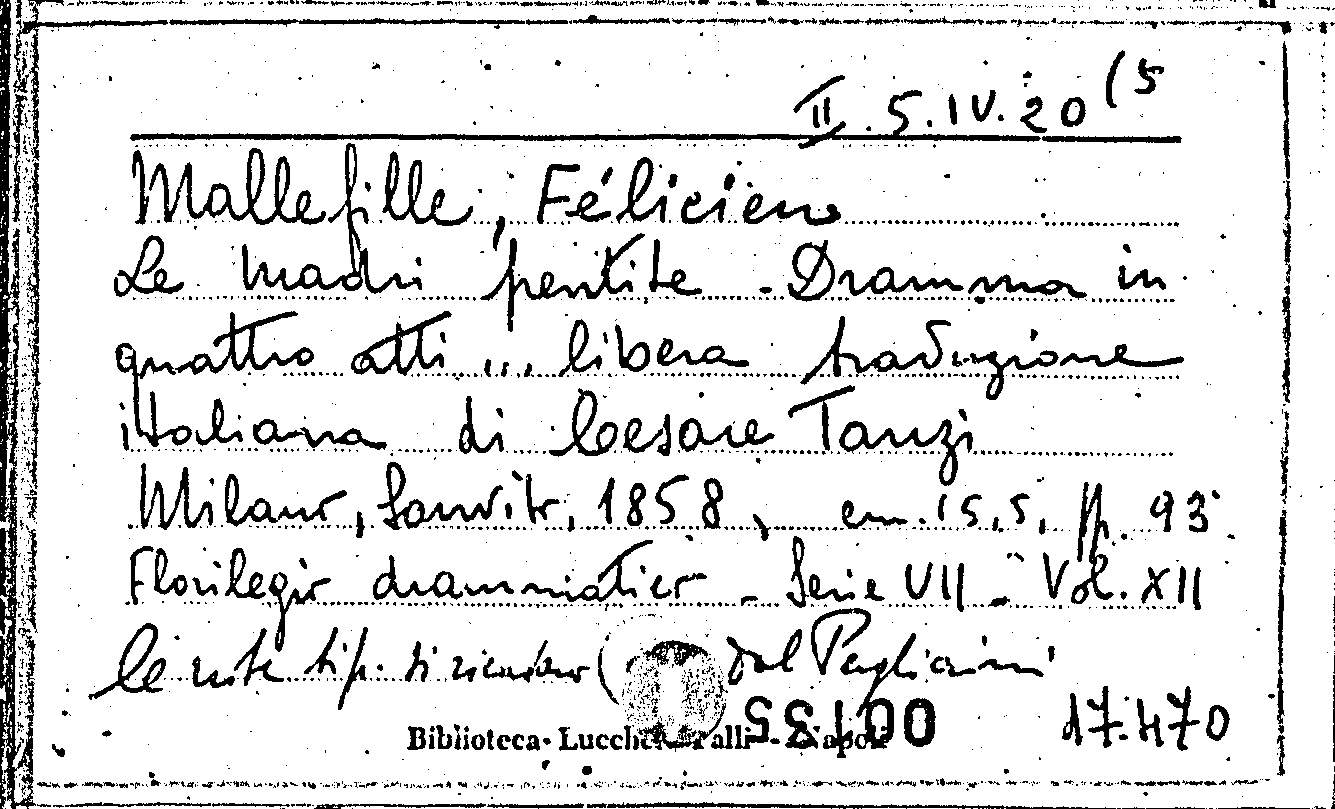 II. 5. IV. 20 (5
Mallefille, Félicien
Le madri pentite - Dramma in
quattro atti ... libera traduzione
italiana di Cesare Tanzi
Milano, Sanvito, 1858, cm. 15,5, pp. 93
Florilegio drammatico - Serie VII - Vol. XII
le note tip. si ricavano ( dal Pagliaini
Biblioteca Lucchesi Palli - Napoli
17.470